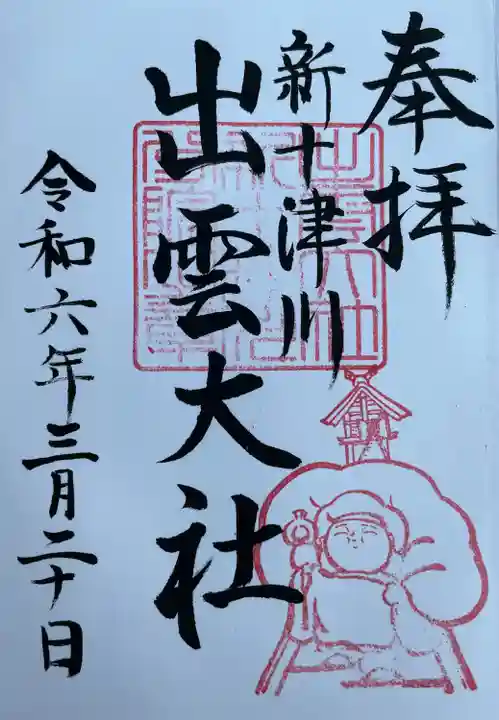 奉拝
新十津川
出雲大社
令和六年三月二十日